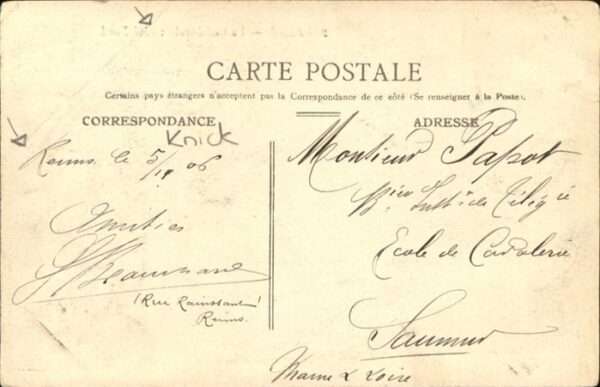 CARTE POSTALE
Certains pays étrangers n'acceptent pas la Correspondance de ce côté (Se renseigner à la Poste).
CORRESPONDANCE
Knick
Reims le 5/ 06
Amitiés
(Rue Rainssant)
Reims.
ADRESSE
Monsieur Papot
de
Ecole de Cavalerie
Saumur
Maine & Loire